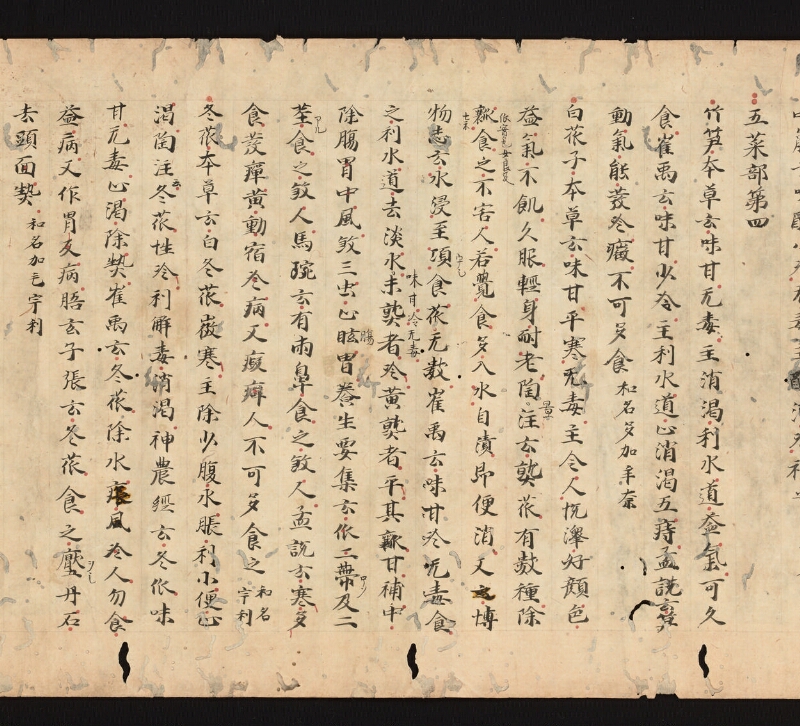 五菜部第四
竹笋本草云味甘无毒主消渴利水道益氣可久
食崔禹云味甘少冷主利水道止消渴五痔孟詵云笋
動氣能發冷癥不可多食和名多加牟奈
白苽子本草云味甘平寒无毒主令人悅澤好顏色
益氣不飢久服輕身耐老陶景注云熟苽有數種除
瓤食之不害人若覺食多入水自漬即便消又博
物志云水浸至項食苽无數崔禹云味甘冷无毒食
之利水道去淡水未熟者冷黃熟者平其瓤甘補中
除腸胃中風煞三虫止眩冒養生要集云苽二蔕及二
莖食之煞人馬琬云有兩鼻食之煞人孟詵云寒多
食發癉黃動宿冷病又瘕癖人不可多食之和名宇利
冬苽本草云白冬苽微寒主除少腹水脹利小便止
渴陶注云冬苽性冷利解毒消渴神農經云冬苽味
甘无毒止渴除熱崔禹云冬苽除水脹風冷人勿食
益病又作胃反病膳玄子張云冬苽食之壓丹石
去頭面熱和名加毛宇利